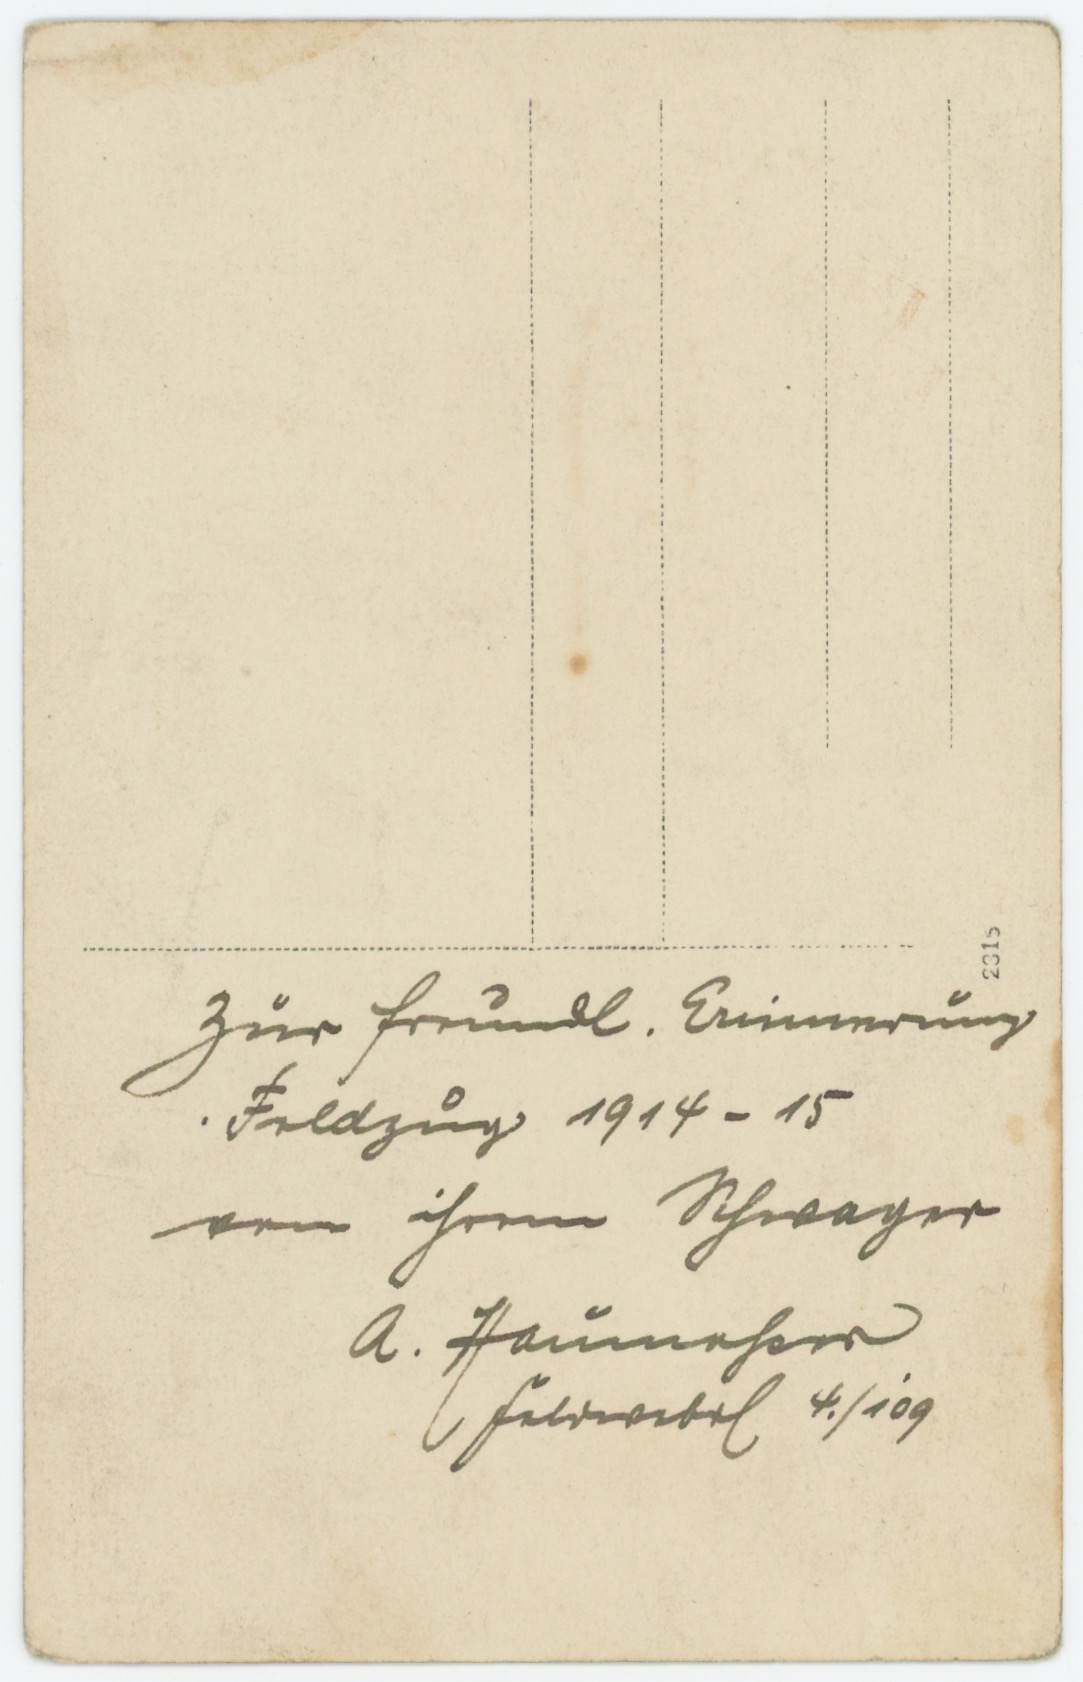 Zur freundl. Erinnerung
Feldzug 1914 - 15
von ihrem Schwager
A.
Feldwebel 4./109
2315